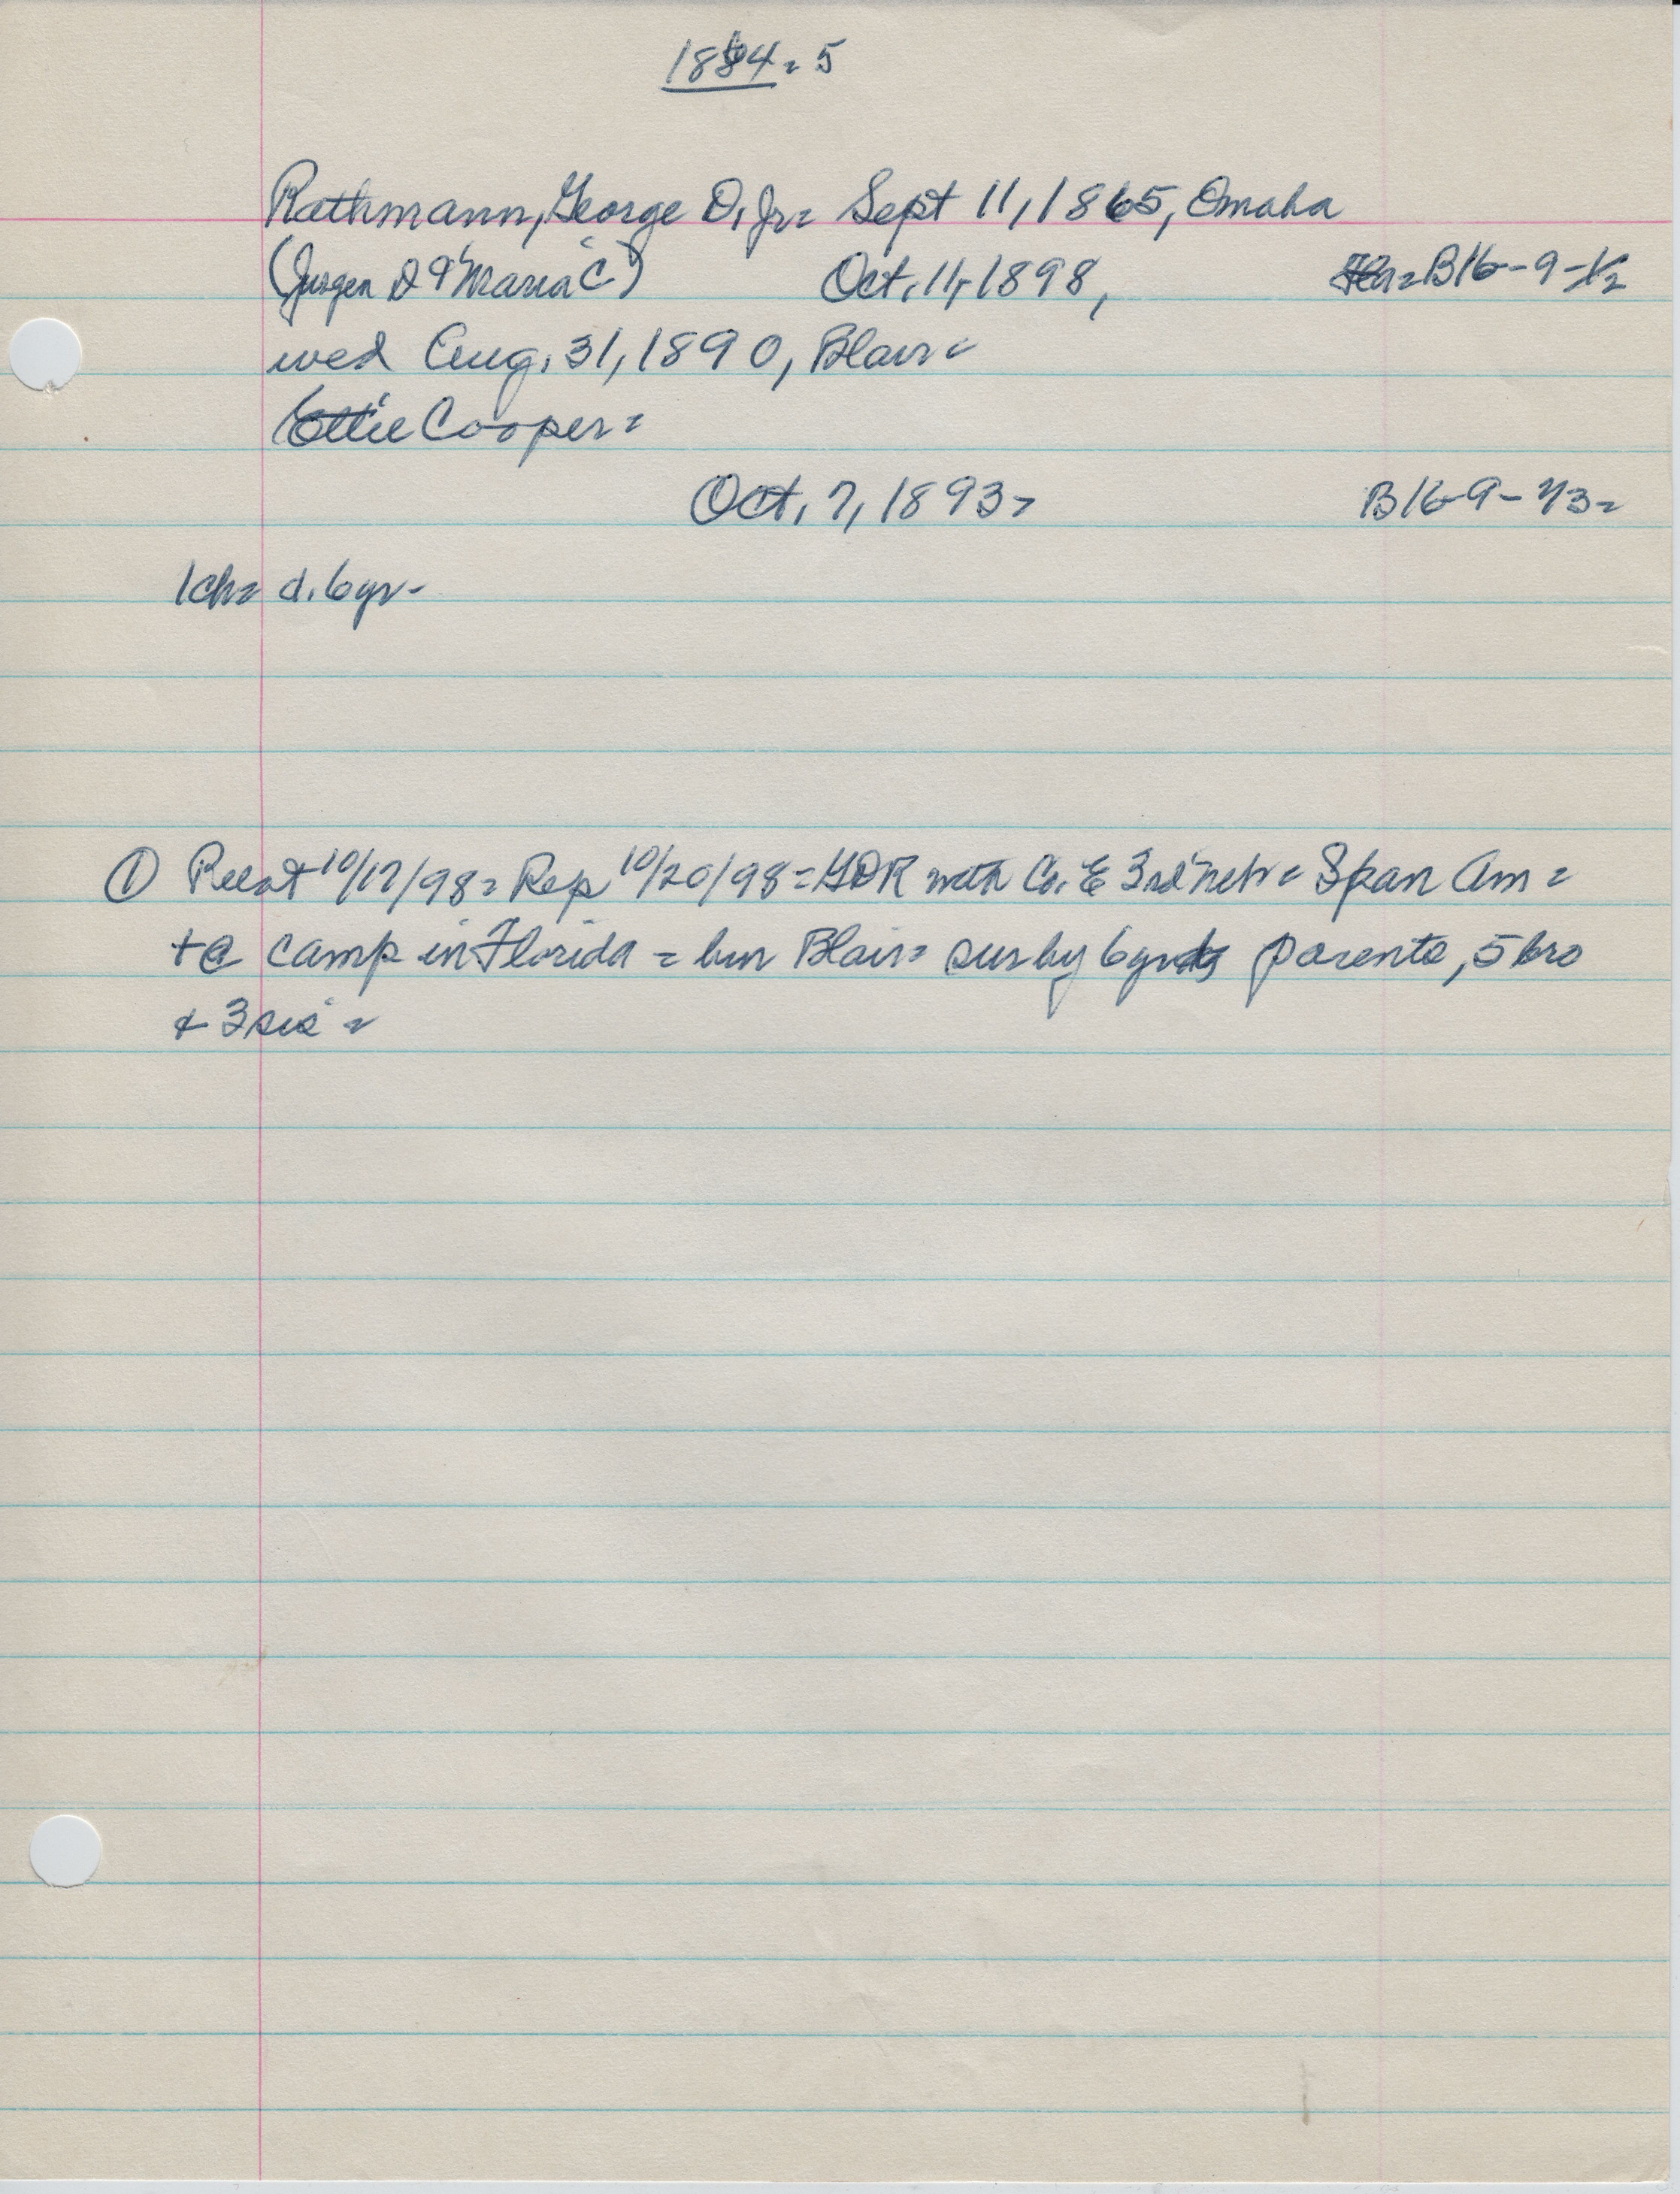 1884 = 5
Rathmann, George D, Jr = Sept 11, 1865, Omaha
(Jurgen D & Maria C) Oct. 11, 1898, B16-9-1/2
wed Aug. 31, 1890, Blair =
Cooper =
Oct, 7, 1893 = B16-9-1/3 =
1ch = d. 6yr -
① 10/17/98 = Rep 10/20/98 = GDR with Co. E 3rd Neb = Span Am =
+ @ camp in Florida = bur Blair = sur by 6yr parents, 5 bro
& 3 sis =